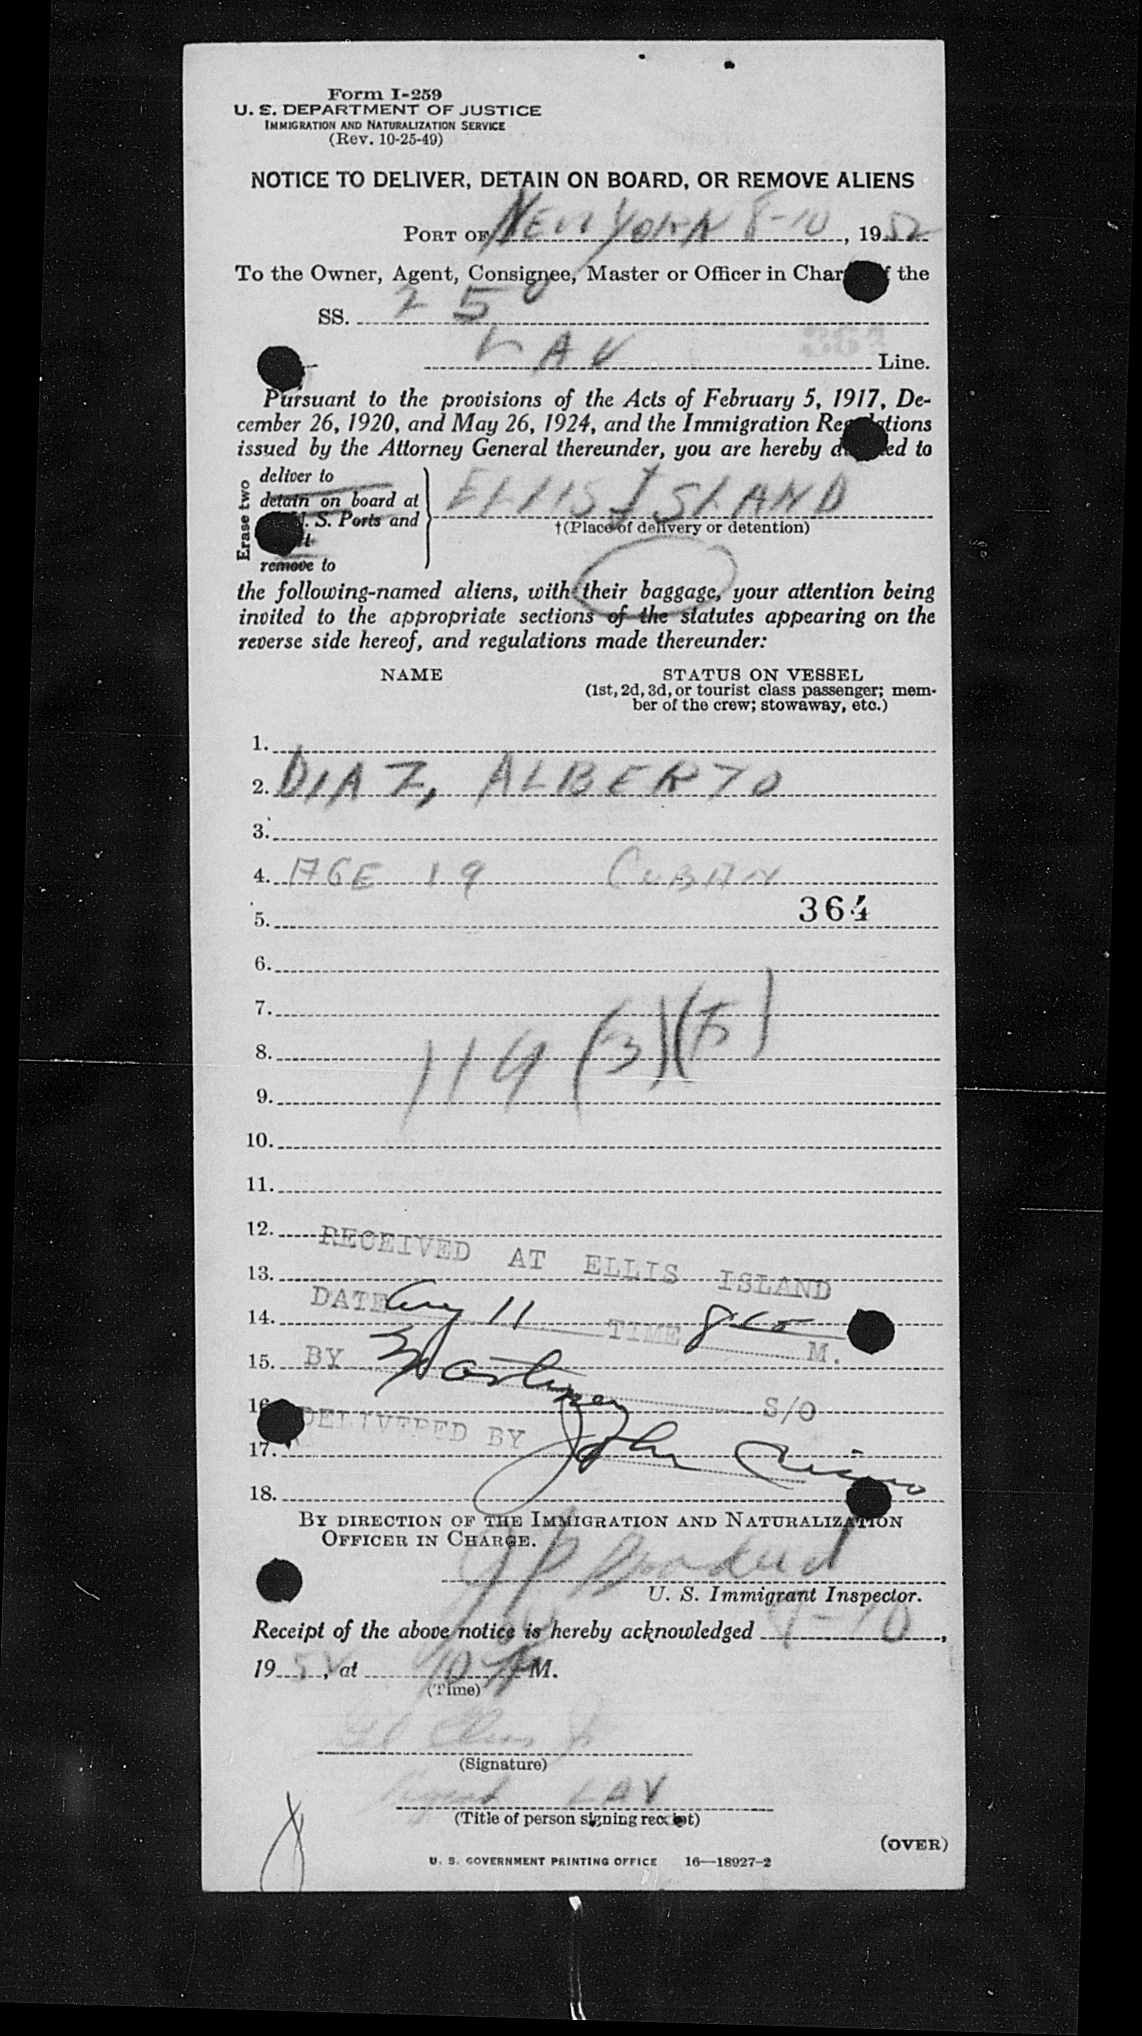 Form I-259
U. S. DEPARTMENT OF JUSTICE
IMMIGRATION AND NATURALIZATION SERVICE
(Rev. 10-25-49)
NOTICE TO DELIVER, DETAIN ON BOARD, OR REMOVE ALIENS
PORT OF NEW YORK 8-10, 1952
To the Owner, Agent, Consignee, Master or Officer in Char of the
SS. 250
LAV Line.
Pursuant to the provisions of the Acts of February 5, 1917, De-
cember 26, 1920, and May 26, 1924, and the Immigration Regulations
issued by the Attorney General thereunder, you are hereby directed to
Erase two
deliver to
detain on board at
U. S. Ports and
remove to
ELLIS ISLAND
†(Place of delivery or detention)
the following-named aliens, with their baggage, your attention being
invited to the appropriate sections of the statutes appearing on the
reverse side hereof, and regulations made thereunder:
NAME STATUS ON VESSEL
(1st, 2d, 3d, or tourist class passenger; mem-
ber of the crew; stowaway, etc.)
1.
2. DIAZ, ALBERTO
3.
4. AGE 19 CUBAN
364
5.
6.
7.
8. 114 (3)(B)
9.
10.
11.
12.
RECEIVED AT ELLIS ISLAND
13.
DATE Aug 11 TIME M.
14.
15. BY Martinez S/O
16.
DELIVERED BY John
17.
18.
BY DIRECTION OF THE IMMIGRATION AND NATURALIZATION
OFFICER IN CHARGE.
U. S. Immigrant Inspector.
Receipt of the above notice is hereby acknowledged 8-10,
1952, at 10 A M.
(Time)
(Signature)
Agent LAV
(Title of person signing receipt)
(OVER)
U. S. GOVERNMENT PRINTING OFFICE 16—18927-2